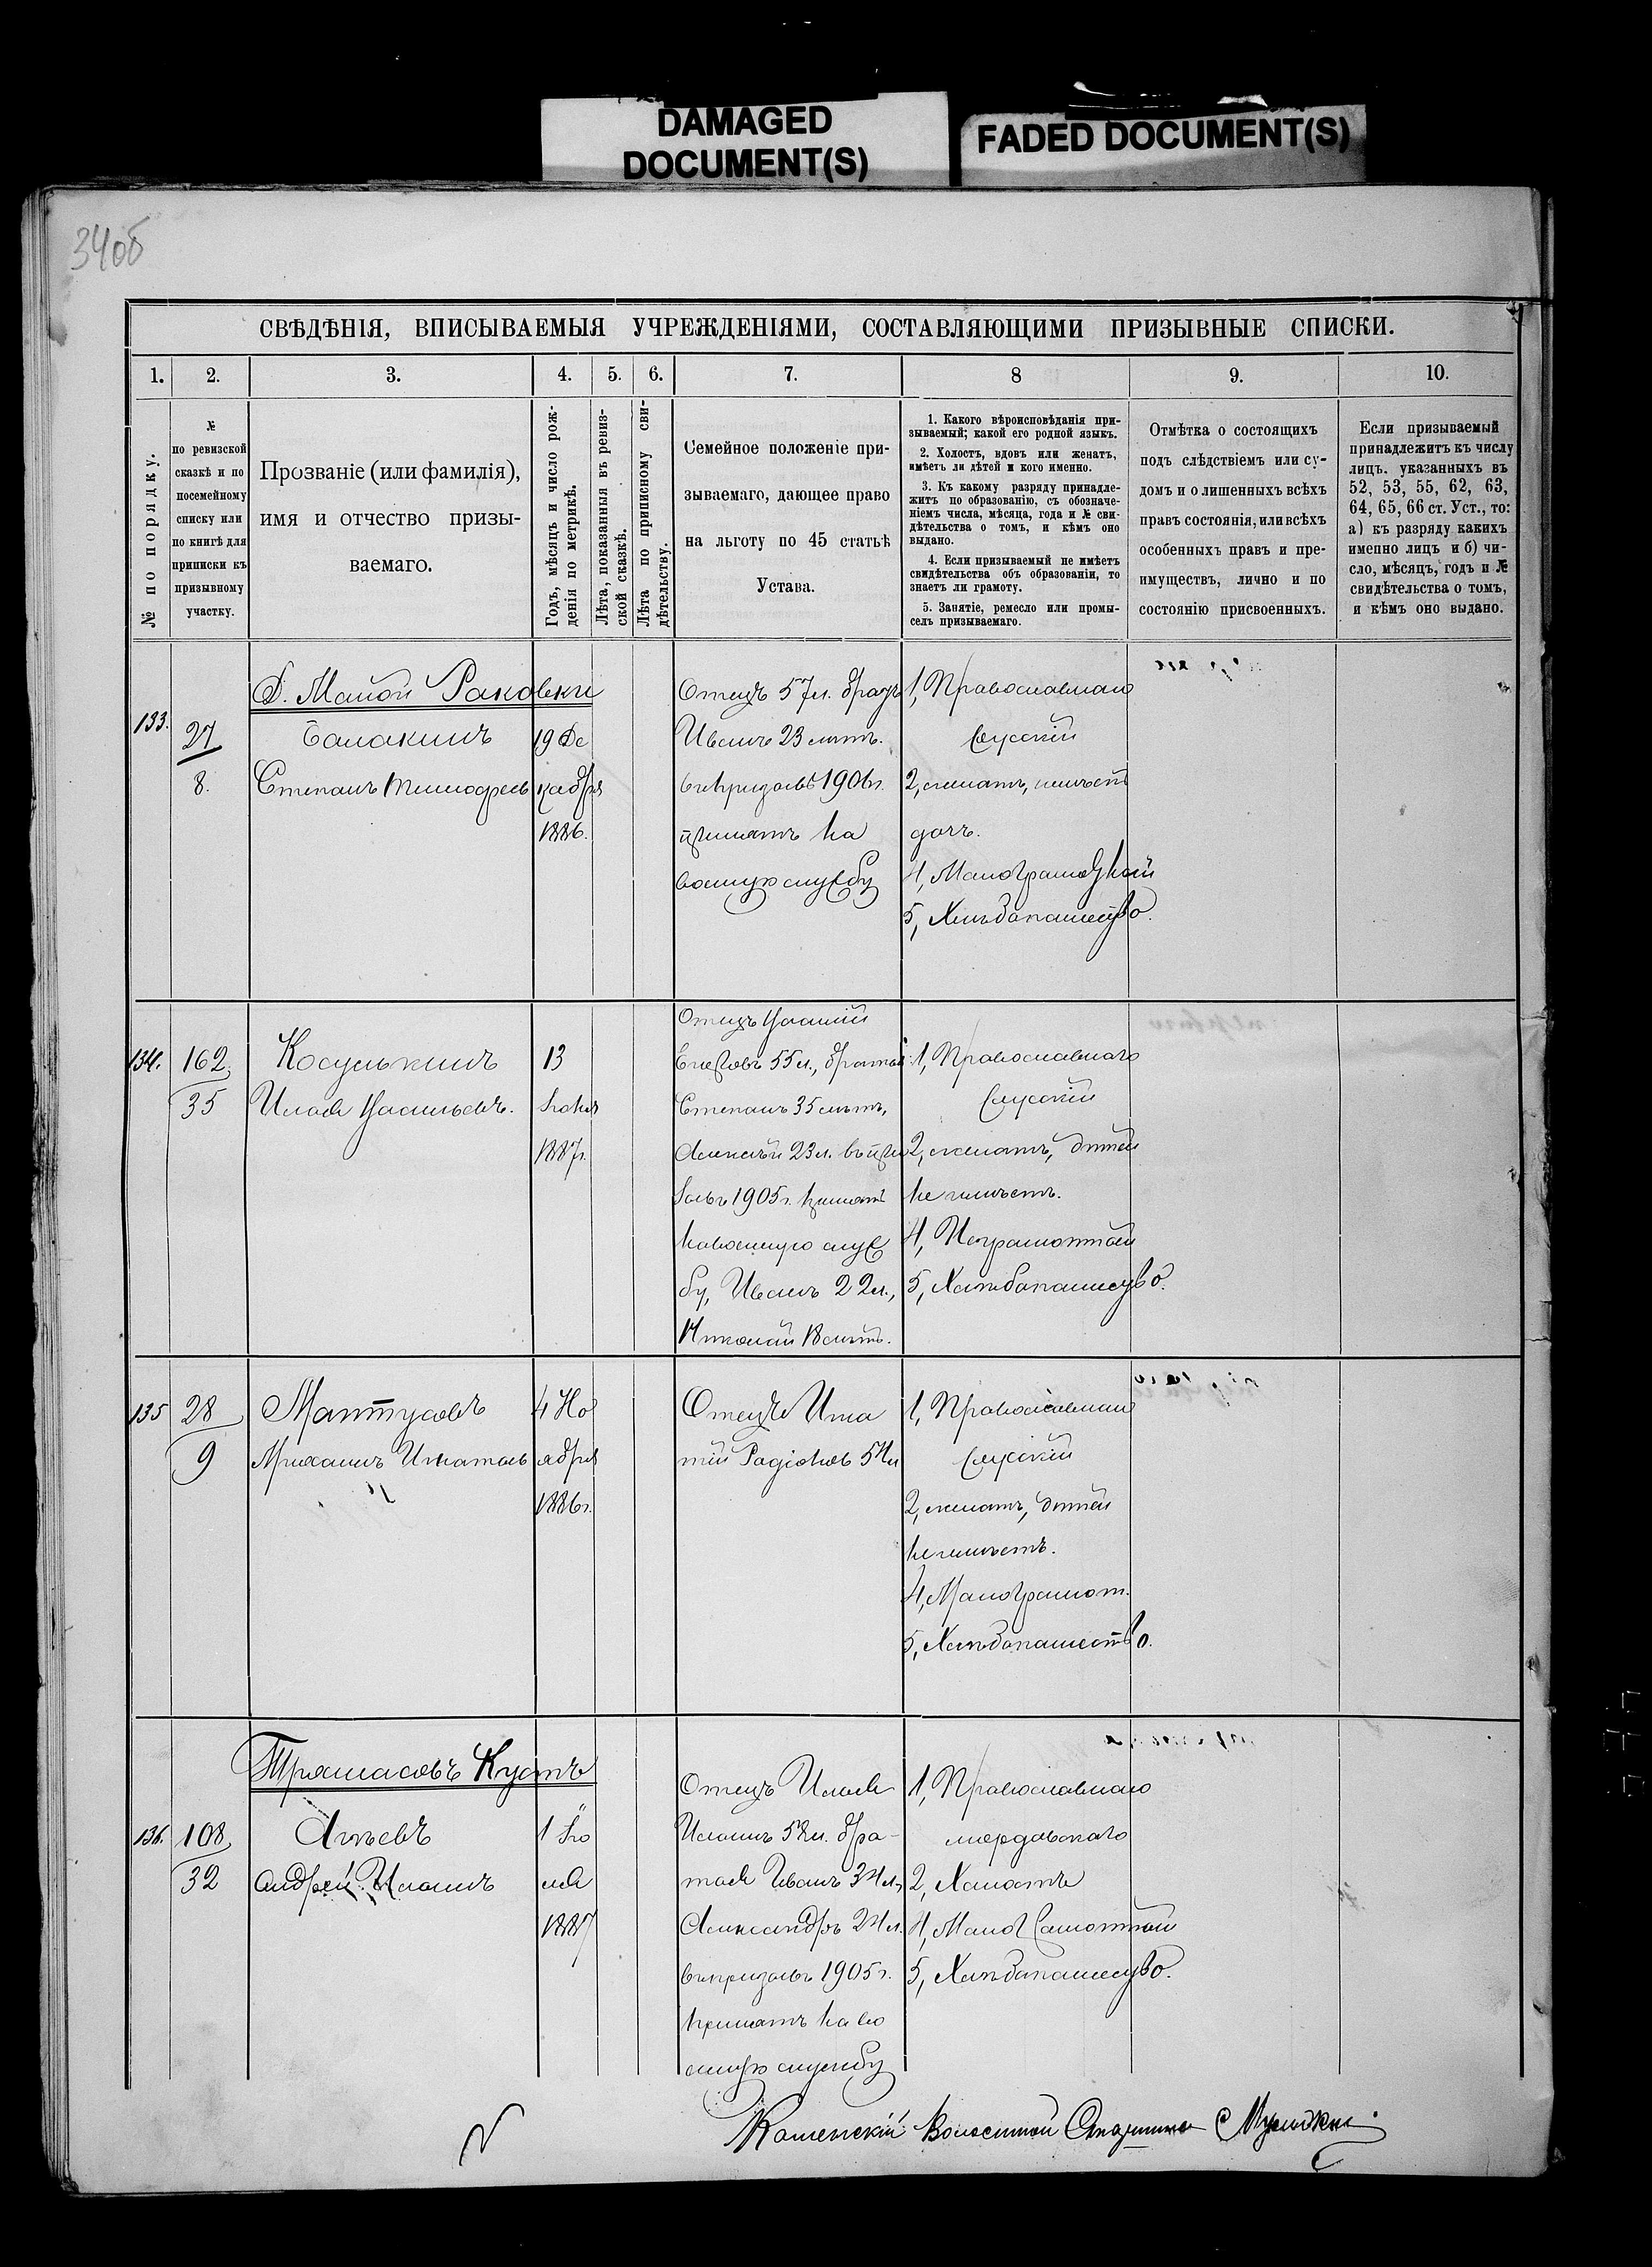 DAMAGED
DOCUMENT(S)
FADED DOCUMENT(S)
34об
СВѢДѢНІЯ, ВПИСЫВАЕМЫЯ УЧРЕЖДЕНІЯМИ, СОСТАВЛЯЮЩИМИ ПРИЗЫВНЫЕ СПИСКИ.
1. 2. 3. 4. 5. 6. 7. 8 9. 10.
№ по порядку.
№
по ревизской
сказкѣ и по
посемейному
списку или
по книгѣ для
приписки къ
призывному
участку.
Прозваніе (или фамилія),
имя и отчество призы-
ваемаго.
Годъ, мѣсяцъ и число рож-
денія по метрикѣ.
Лѣта, показанныя въ ревиз-
ской сказкѣ.
Лѣта по приписному сви-
дѣтельству.
Семейное положеніе при-
зываемаго, дающее право
на льготу по 45 статьѣ
Устава.
1. Какого вѣроисповѣданія при-
зываемый; какой его родной языкъ.
2. Холостъ, вдовъ или женатъ,
имѣетъ ли дѣтей и кого именно.
3. Къ какому разряду принадле-
житъ по образованію, съ обозначе-
ніемъ числа, мѣсяца, года и № сви-
дѣтельства о томъ, и кѣмъ оно
выдано.
4. Если призываемый не имѣетъ
свидѣтельства объ образованіи, то
знаетъ ли грамоту.
5. Занятіе, ремесло или промы-
селъ призываемаго.
Отмѣтка о состоящихъ
подъ слѣдствіемъ или су-
домъ и о лишенныхъ всѣхъ
правъ состоянія, или всѣхъ
особенныхъ правъ и пре-
имуществъ, лично и по
состоянію присвоенныхъ.
Если призываемый
принадлежитъ къ числу
лицъ. указанныхъ въ
52, 53, 55, 62, 63,
64, 65, 66 ст. Уст., то:
а) къ разряду какихъ
именно лицъ и б) чи-
сло, мѣсяцъ, годъ и №
свидѣтельства о томъ,
и кѣмъ оно выдано.
Д. Малой Раковки
133.
27
8.
Балакинъ
Степанъ Тимофеев
19 Де
кабря
1886.
Отецъ 57 л. братъ
Иванъ 23 лѣтъ.
въ призывъ 1906 г.
принятъ на
военную службу
1, Православнаго
Русскій
2, женатъ, имѣетъ
дочь.
4, Малограмотный
5, Хлѣбопашество.
134.
162
35
Косулькинъ
13
Іюня
1887 г.
Отецъ
55 л., братья:
Степанъ 35 лѣтъ,
Алексѣй 23 л. въ при
зывъ 1905 г. принятъ
на военную служ
бу, Иванъ 22 л.,
Николай 18 лѣтъ.
1, Православнаго
Русскій
2, женатъ, дѣтей
не имѣетъ.
4, Неграмотный
5, Хлѣбопашество.
135
28
9
Мантусовъ
Михаилъ Игнатьев
4 Но
ября
1886 г.
Отецъ Игна
тій Радіонов 54 л
1, Православнаго
Русскій
2, женатъ, дѣтей
не имѣетъ.
4, Малограмот.
5, Хлѣбопашество.
Трямасовъ Кустъ
136.
108
32
Агѣевъ
Андрей
1 Ію
ля
1887
Отецъ
58 л. бра-
тья Иванъ 34 л,
Александръ 24 л.
въ призывъ 1905 г.
принятъ на во
енную службу
1, Православнаго
мордовскаго
2, Холостъ
4, Малограмотный
5, Хлѣбопашество.
Каменскій Волостной Старшина